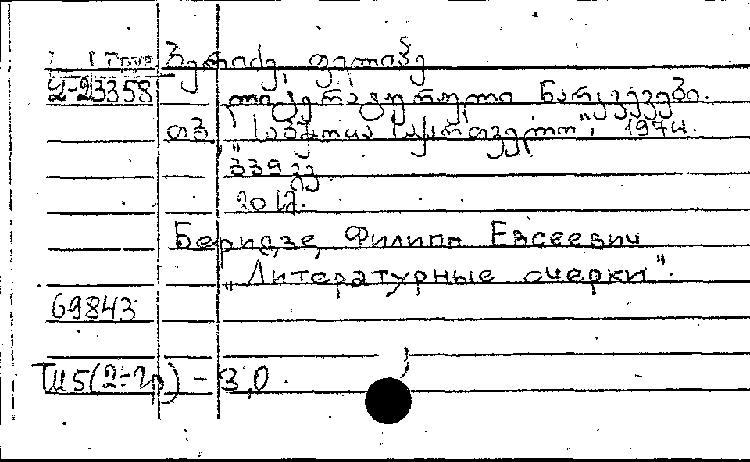 ბერიძე, ფილიპე
2-23358
ლიტერატურული ნარკვევები.
თბ. "საბჭოთა საქართველო", 1974.
339 გვ.
Беридзе, Филипп Евсеевич
"Литературные очерки".
69843